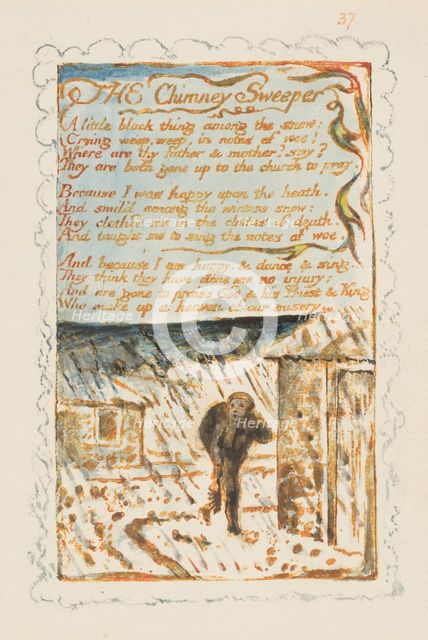 37
THE Chimney Sweeper
A little black thing among the snow:
Crying weep, weep, in notes of woe!
Where are thy father & mother, say?
They are both gone up to the church to pray.
Because I was happy upon the heath
And smil'd among the winters snow:
They clothed me in the clothes of death
And taught me to sing the notes of woe.
And because I am happy, & dance & sing,
They think they have done me no injury:
And are gone to praise God & his Priest & King
Who make up a heaven of our misery.
Heritage
Heritage
Heritage
Heritage
Heritage
Heritage